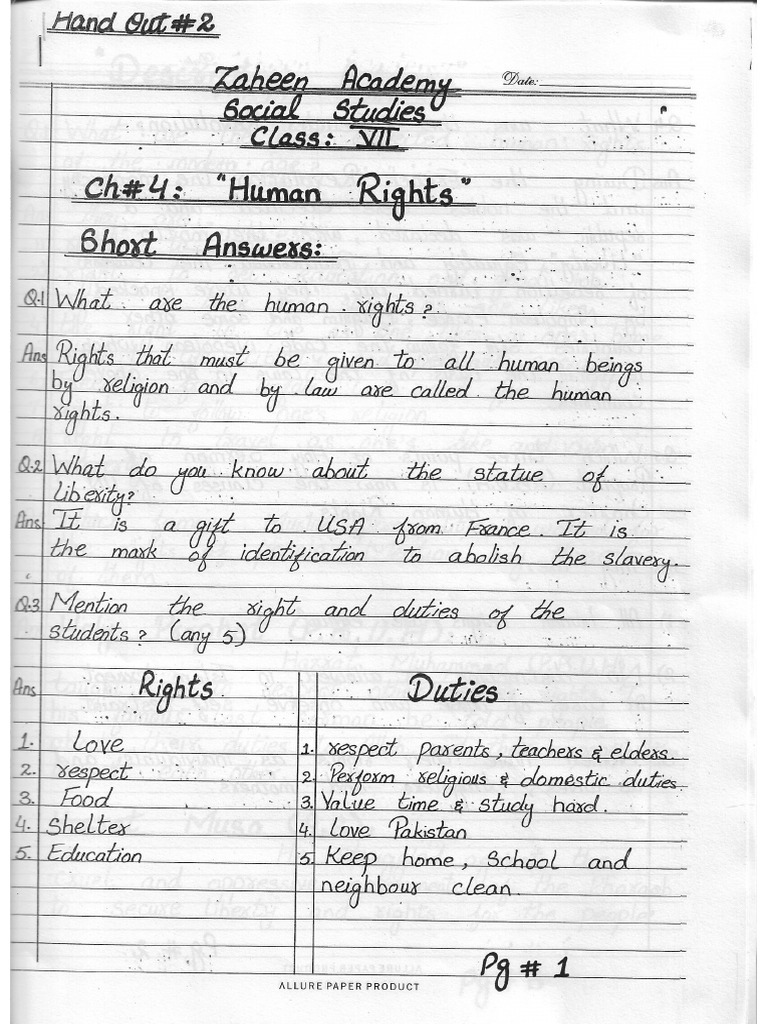 Hand Out # 2
Date:
Zaheen Academy
Social Studies
Class: VII
Ch# 4: "Human Rights"
Short Answers:
Q.1 What are the human rights?
Ans Rights that must be given to all human beings
by religion and by law are called the human
rights.
Q.2 What do you know about the statue of
liberity?
Ans. It is a gift to USA from France. It is
the mark of identification to abolish the slavery.
Q.3 Mention the right and duties of the
students? (any 5)
Ans Rights Duties
1. Love 1. respect parents, teachers & elders.
2. respect 2. Perform religious & domestic duties.
3. Food 3. Value time & study hard.
4. Shelter 4. love Pakistan
5. Education 5. Keep home, School and
neighbour clean.
Pg # 1
ALLURE PAPER PRODUCT